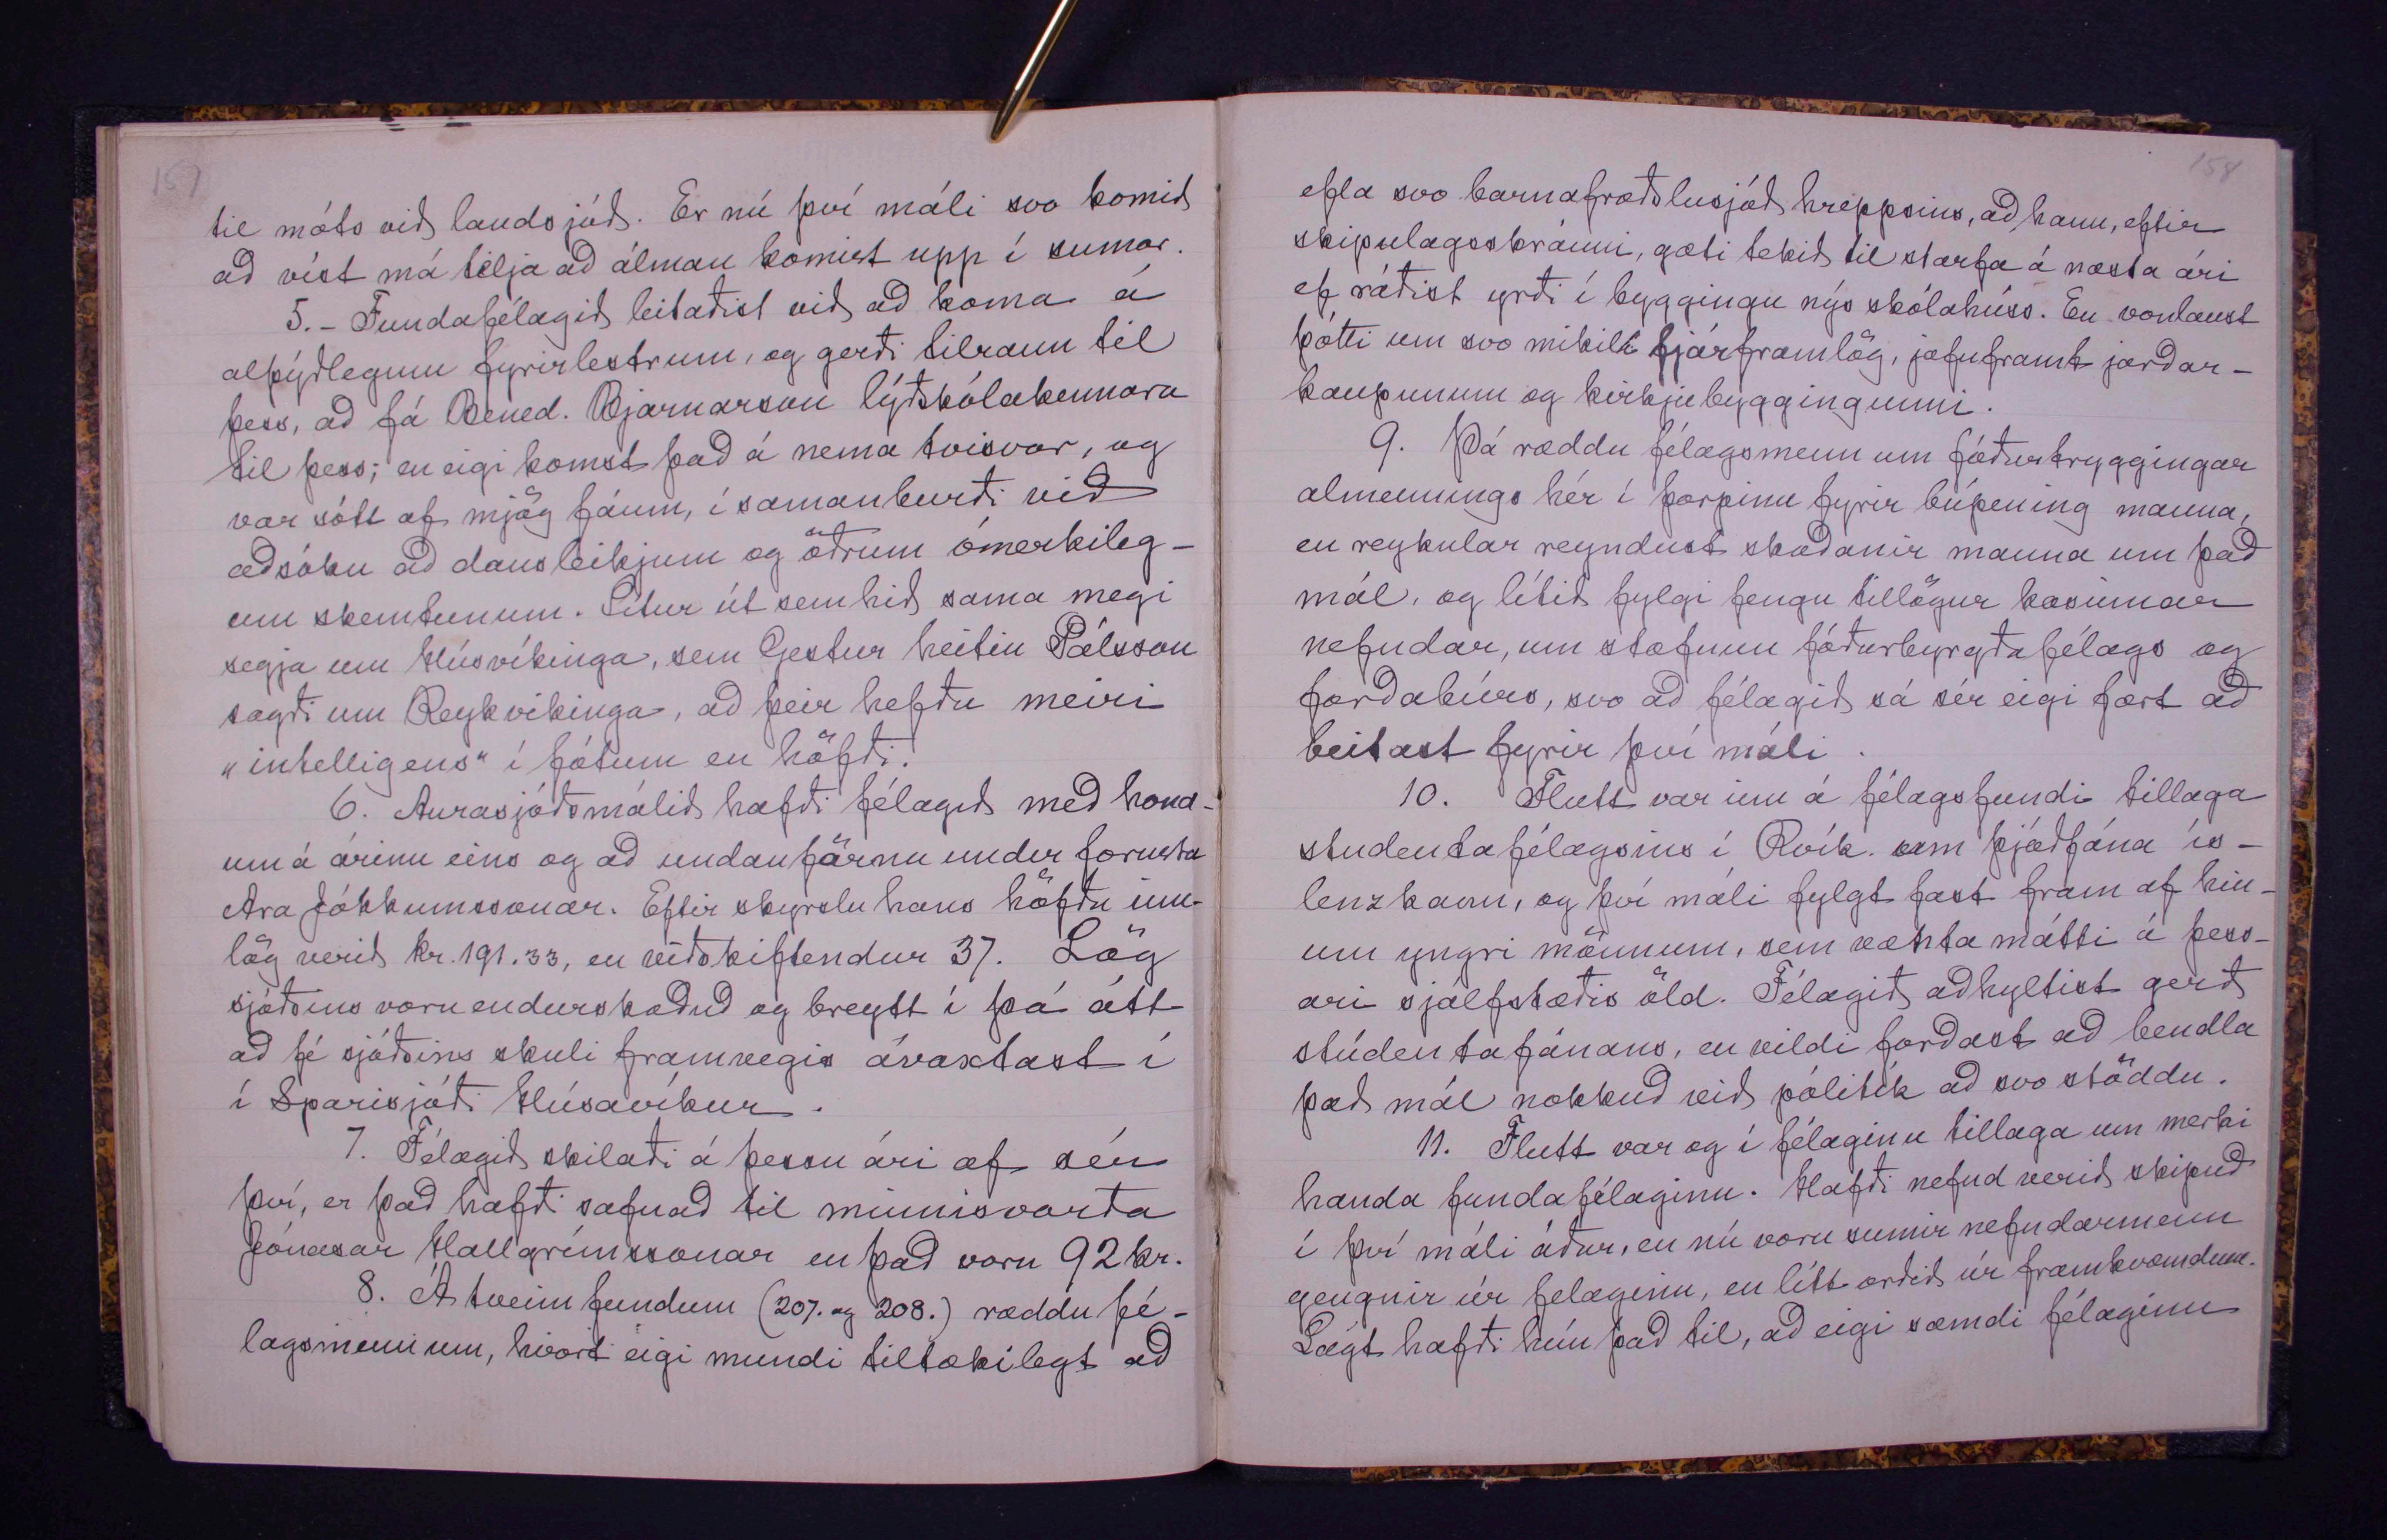 157
til móts við landsjóð. Er nú því máli svo komið
að víst má telja að álman komist upp í sumar.
5. – Fundafélagið leitaðist við að koma á
alþýðlegum fyrirlestrum, og gerði tilraun til
þess, að fá Bened. Bjarnarson lýðskólakennara
til þess; en eigi komst það á nema tvisvar, og
var sótt af mjög fáum, í samanburði við
aðsókn að dansleikjum og öðrum ómerkileg-
um skemtunum. Lítur út sem hið sama megi
segja um Húsvíkinga, sem Gestur heitin Pálsson
sagði um Reykvíkinga, að þeir hefðu meiri
„intelligens" í fótum en höfði.
6. Aurasjóðsmálið hafði félagið með hönd-
um á árinu eins og að undanförnu undir forustu
Ara Jókkumssonar. Eftir skýrslu hans höfðu inn-
lög verið kr. 191.33, en viðskiftendur 37. Lög
sjóðsins voru endurskoðuð og breytt í þá átt
að fé sjóðsins skuli framvegis ávaxtast í
í Sparisjóði Húsavíkur.
7. Félagið skilaði á þessu ári af sér
því, er það hafði safnað til minnisvarða
Jónasar Hallgrímssonar en það voru 92 kr.
8. Á tveim fundum (207. og 208.) ræddu fé-
lagsmenn um, hvort eigi mundi tiltækilegt að
158
efla svo barnafræðslusjóð hreppsins, að hann, eftir
skipulagsskránni, gæti tekið til starfa á næsta ári
ef ráðist yrði í byggingu nýs skólahúss. En vonlaust
þótti um svo mikil fjárframlög, jafnframt jarðar-
kaupunum og kirkjubyggingunni.
9. Þá ræddu félagsmenn um fóðurtryggingar
almennings hér í þorpinu fyrir búpening manna,
en reykular reyndust skoðanir manna um það
mál, og lítið fylgi fengu tillögur kosinnar
nefndar, um stofnun fóðurbyrgðafélags og
forðabúrs, svo að félagið sá sér eigi fært að
beitast fyrir því máli.
10. Flutt var inn á félagsfundi tillaga
studentafélagsins í Rvík. um þjóðfána ís-
lenzkann, og því máli fylgt fast fram af hin-
um yngri mönnum, sem vænta mátti á þess-
ari sjálfstæðis öld. Félagið aðhyltist gerð
stúdentafánans, en vildi forðast að bendla
það mál nokkuð við pólitík að svo stöddu.
11. Flutt var og í félaginu tillaga um merki
handa fundafélaginu. Hafði nefnd verið skipuð
í því máli áður, en nú voru sumir nefndarmenn
gengnir úr félaginu, en lítt orðið úr framkvæmdum.
Lagt hafði hún það til, að eigi sæmdi félaginu